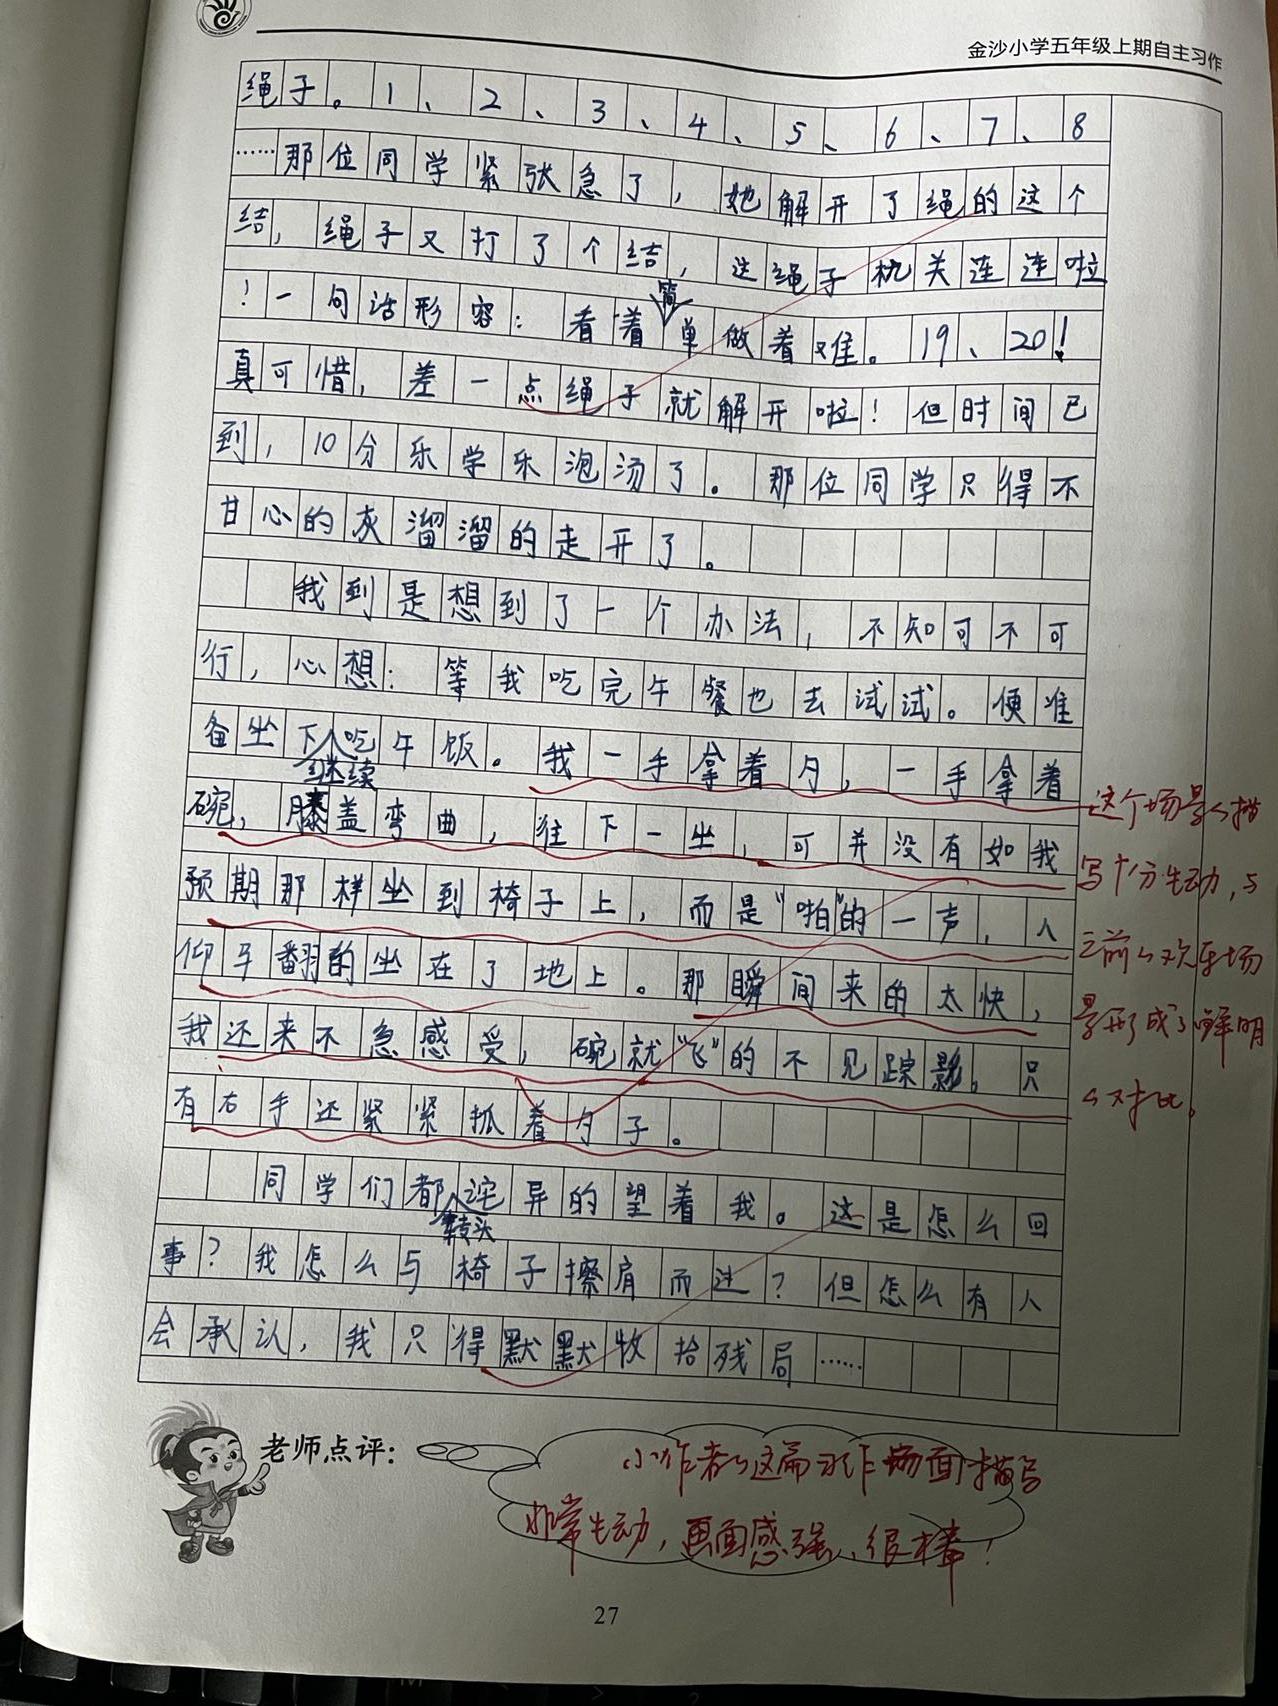 金沙小学五年级上期自主习作
绳子。1、2、3、4、5、6、7、8
……那位同学紧张急了，她解开了绳的这个
结，绳子又打了个结，这绳子机关连连啦
！一句话形容：看着简单做着难。19、20！
真可惜，差一点绳子就解开啦！但时间已
到，10分乐学乐泡汤了。那位同学只得不
甘心的灰溜溜的走开了。
我到是想到了一个办法，不知可不可
行，心想：等我吃完午餐也去试试。便准
备坐下继续吃午饭。我一手拿着勺，一手拿着
碗，膝盖弯曲，往下一坐，可并没有如我
预期那样坐到椅子上，而是“啪”的一声，人
仰车翻的坐在了地上。那瞬间来的太快，
我还来不急感受，碗就“飞”的不见踪影，只
有右手还紧紧抓着勺子。
同学们都转头诧异的望着我。这是怎么回
事？我怎么与椅子擦肩而过？但怎么有人
会承认，我只得默默收拾残局……
这个场景的描
写十分生动，与
之前的欢乐场
景形成了鲜明
的对比。
老师点评：
小作者的这篇习作场面描写
非常生动，画面感强，很棒！
27